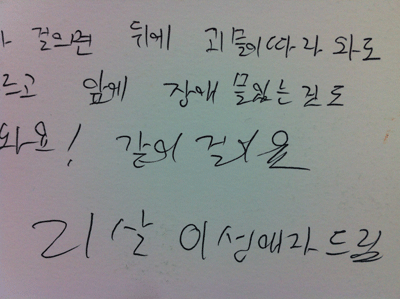 걸으면 뒤에 괴물이따라 와도
르고 앞에 장애 물있는 길도
와요! 같이 걸어요
리살 이성애자드림